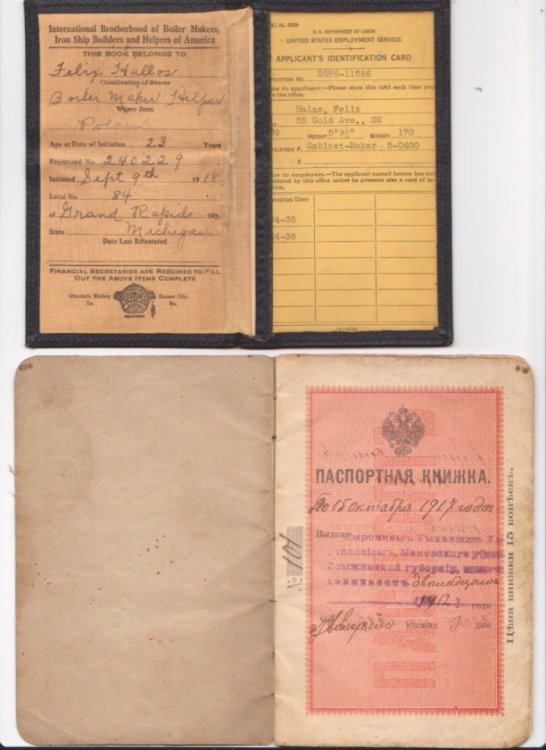 International Brotherhood of Boiler Makers,
Iron Ship Builders and Helpers of America
THIS BOOK BELONGS TO
Felix Hallos
Classification of Bearer
Boiler Maker Helper
Where Born
Polan
Age at Date of Initiation 23 Years
Registered No. 240229
Initiated Sept 9th 1918
Local No. 84
of Grand Rapids city,
State Michigan
Date Last Reinstated
FINANCIAL SECRETARIES ARE REQUIRED TO FILL
OUT THE ABOVE ITEMS COMPLETE
Interstate Bindery Kansas City,
Co. Mo.
U.S. DEPARTMENT OF LABOR
UNITED STATES EMPLOYMENT SERVICE
APPLICANT'S IDENTIFICATION CARD
2686-11566
to applicant.—Please show this card each time you
the office.
Halas, Felix
55 Gold Ave., SW
HEIGHT 5'9½" WEIGHT 170
Cabinet-Maker 5-0600
S
to employers.—The applicant named hereon has not
by this office unless he presents also a card of
Date
4-35
4-38
ПАСПОРТНАЯ КНИЖКА.
По 15 октября 1917 года
Выдана
Маковскаго
Ломжинской губерніи,
двенадцатого
1912 года
мѣсяца дня
№ 101
Цѣна книжки 15 копѣекъ.